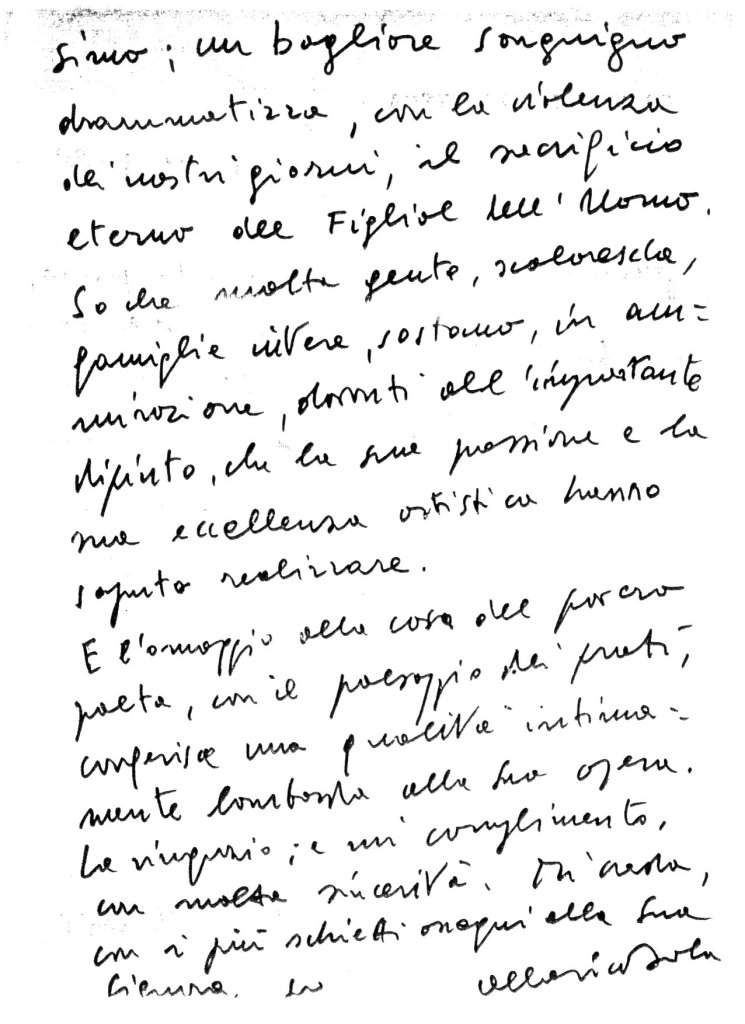 simo; un bagliore sanguigno
drammatizza, con la violenza
dei nostri giorni, il sacrificio
eterno del Figliol dell'Uomo.
So che molta gente, scolaresche,
famiglie intere, sostano, in am=
mirazione, davanti all'importante
dipinto, che la sua passione e la
sua eccellenza artistica hanno
saputo realizzare.
E l'omaggio alla casa del povero
poeta, con il paesaggio dei prati,
conferisce una qualità intima-
mente lombarda alla Sua opera.
La ringrazio; e mi complimento,
con molta sincerità. Mi creda,
con i più schietti ossequi alla Sua